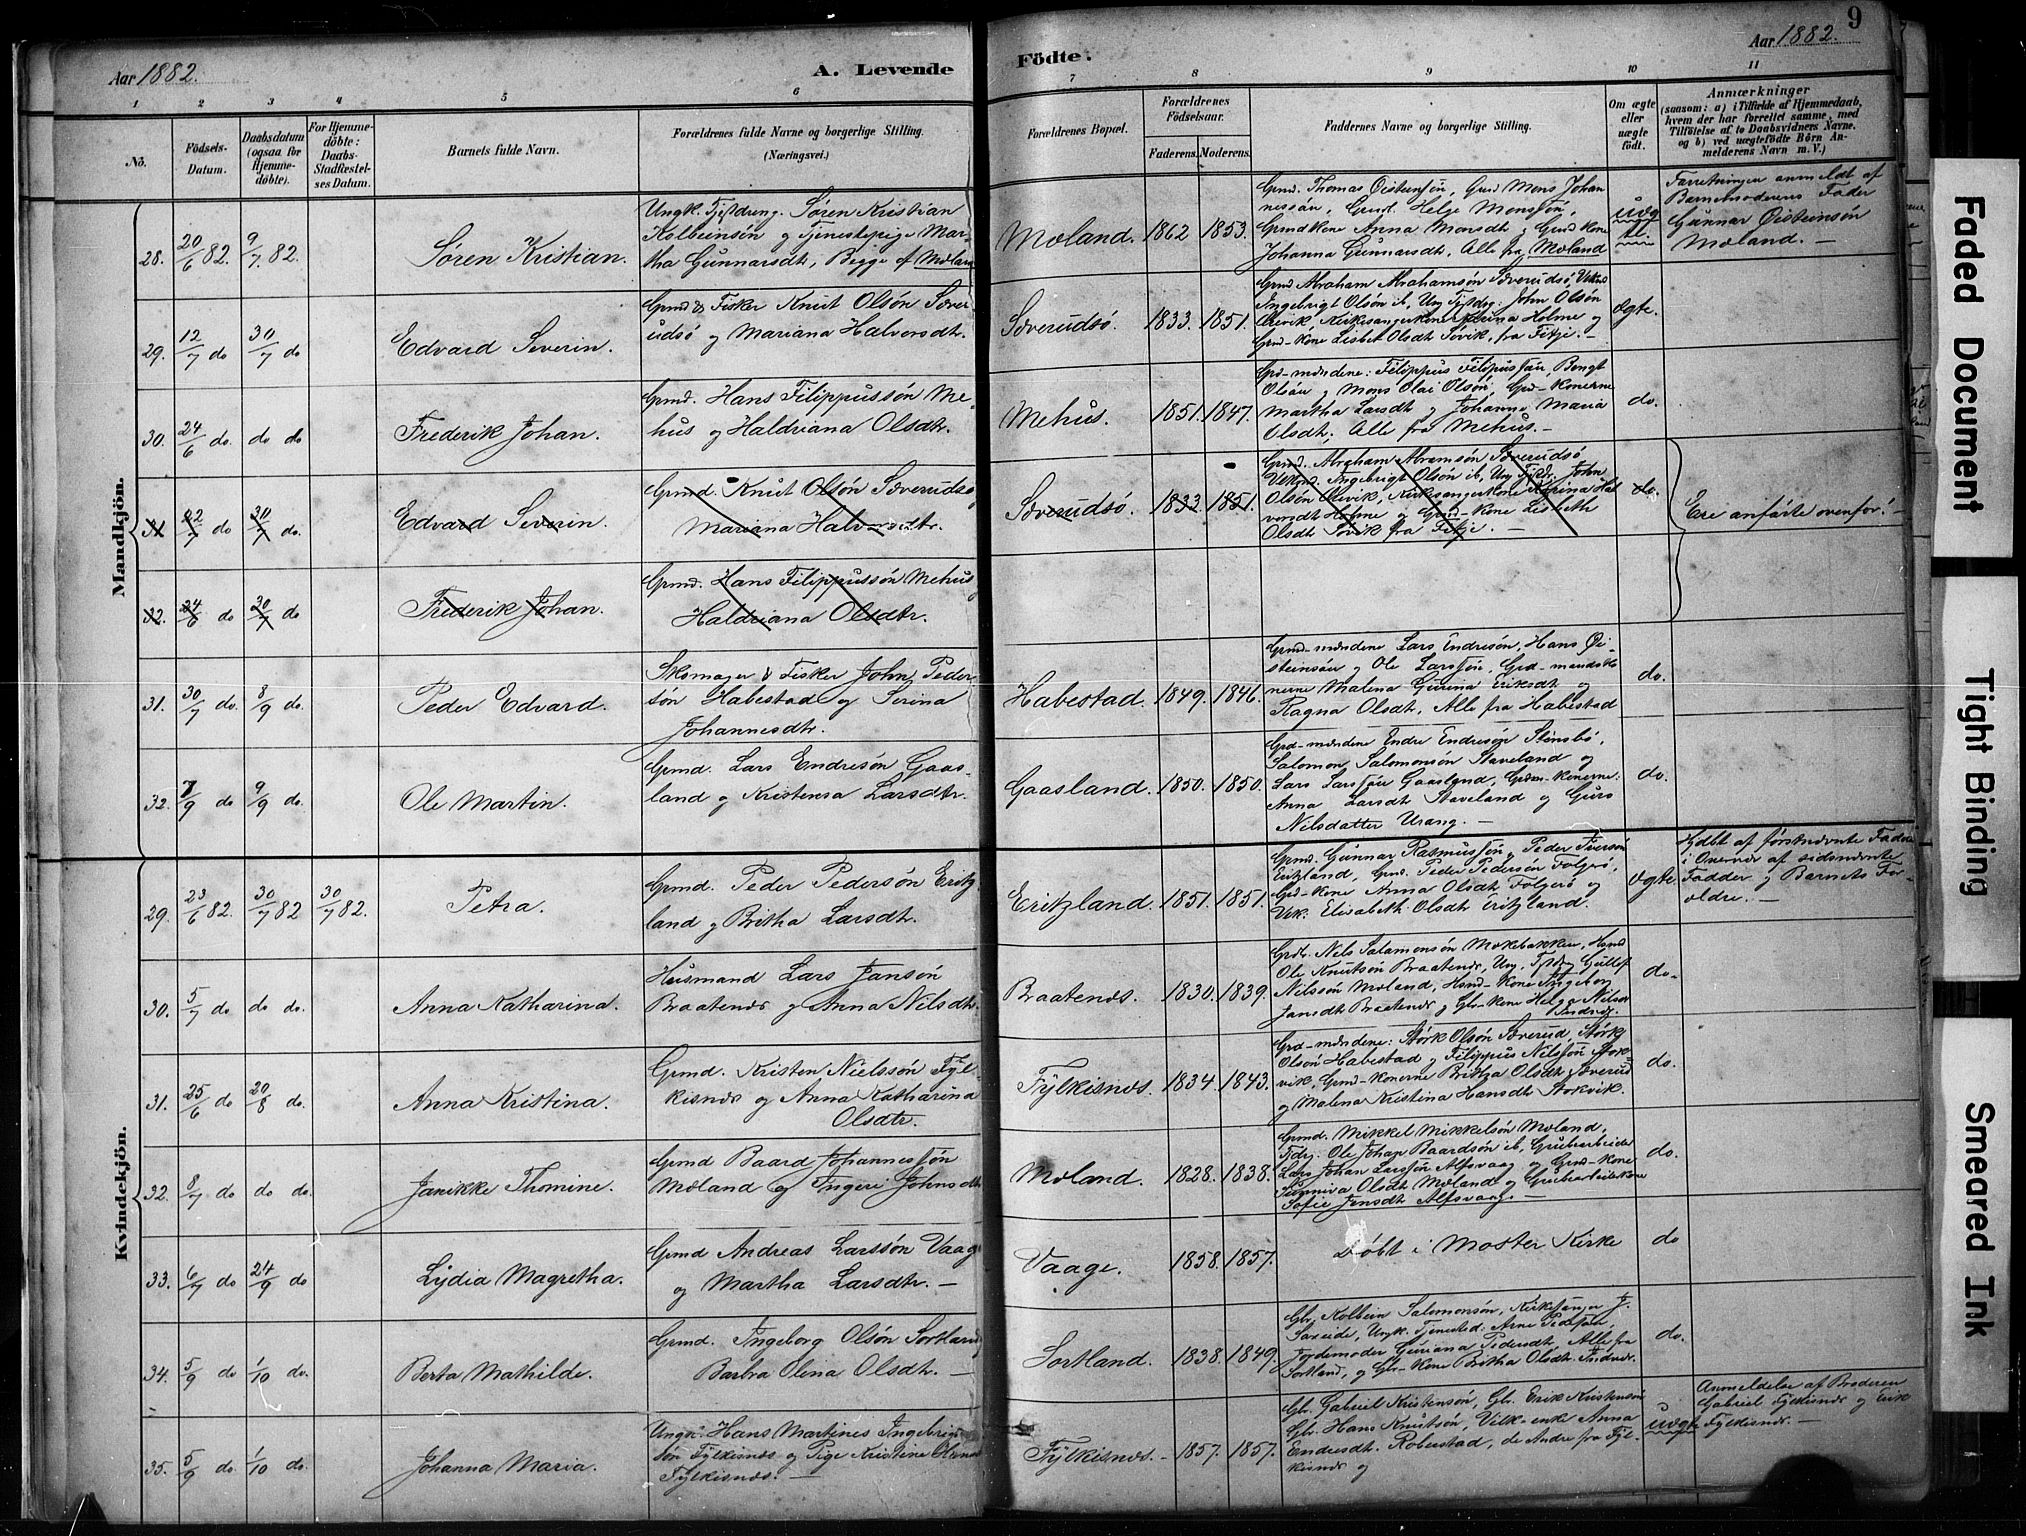 9
Aar 1882.
A. Levende
Födte.
Aar 1882.
1 2 3 4 5 6 7 8 9 10 11
No.
Födsels-Datum.
Daabsdatum (ogsaa for Hjemme-döbte).
For Hjemme-döbte: Daabs-Stadfæstel-ses Datum.
Barnets fulde Navn.
Forældrenes fulde Navne og borgerlige Stilling. (Næringsvei.)
Forældrenes Bopæl.
Forældrenes Födselsaar.
Faderens. Moderens.
Faddernes Navne og borgerlige Stilling.
Om ægte eller uægte födt.
Anmærkninger
(saasom: a) i Tilfælde af Hjemmedaab, hvem der har forrettet samme, med Tilföielse af to Daabsvidners Navne. og b) ved uægtefödte Börn An-melderens Navn m. V.)
Mandkjön.
28. 20/6 82. 9/7. 82. Søren Kristian.
Ungk. Tjstdreng. Søren Kristian
Kolbeinsön og Tjenestepige Mar-
tha Gunnarsdtr, Begge af Mæland
Mæland. 1862 1853.
Grmd. Thomas Øistensön, Grmd Mons Johan
nessön, Grmd. Helge Monssön,
Grmdkone Anna Monsdt og Grmdkone
Johanna Gunnarsdt. Alle fra Mæland
uæg
te
Forretningen anmeldt af
Barnemoderens Fader
Gunnar Øisteinsön
Mæland. —
29. 12/7 do 30/7 do Edvard Severin.
Grmd & Fisker Knut Olsön Sæver
udsö og Mariana Halvorsdtr.
Sæverudsö. 1833. 1851.
Grmd Abraham Abrahamsön Sæverudsö,
Ingebrigt Olsön ib, Ung Tjstdrg. John Olsön
Kirkesangerkone Karina Holme og
Grmd-kone Lisbet Olsdt Søvik, fra Fitje. —
ægte.
30. 24/6 do. do do Frederik Johan.
Grmd. Hans Filippussön Me-
hus og Haldriana Olsdtr.
Mehus. 1851. 1847.
Grd-mændene: Filippus Filipussön, Bengt
Olsön og Mons Olai Olsön, Grd-konerne
Martha Larsdt og Johanne Maria
Olsdt. Alle fra Mehus. —
do.
31 12/7 do 30/7 do. Edvard Severin.
Grmd. Knut Olsön Sæverudsö
Mariana Halvorsdtr.
Sæverudsö 1833. 1851.
Grmd. Abraham Abramsön Sæverudsö
Ingebrigt Olsön ib, Ung Tjstdrg. John
Olsön Kirksangerkone Karina Hal
vorsdt Holme og Grmd-kone Lisbeth
Olsdt Søvik fra Fitje. —
do.
Ere anförte ovenfor! —
32. 24/6 do 30/7 do Frederik Johan.
Grmd. Hans Filippussön Mehus
Haldriana Olsdtr.
31. 30/7 do. 8/9 do. Peder Edvard.
Skomager & Fisker John Peder
sön Habestad og Serina
Johannesdtr.
Habestad. 1849. 1846.
Grmd-mændene Lars Endresön, Hans Øi-
steinsön og Ole Larssön, Grd-mandsko
nerne Malena Gurina Eriksdt og
Ragna Olsdt, Alle fra Habestad
do.
32. 7/9 do 9/9 do. Ole Martin.
Grmd. Lars Endresön Gaas-
land og Kristensa Larsdtr.
Gaasland. 1850. 1850.
Grd-mændene Endre Endresön Stensbö,
Salomon Salomonsön Staveland og
Lars Larssön Gaasland, Grdm-konerne:
Anna Larsdt Staveland og Guro
Nilsdatter Urang. —
do.
Kvindekjön.
29. 23/6 82. 30/7 82 30/7 82. Petra.
Grmd. Peder Pedersön Eritz
land og Britha Larsdtr.
Eritzland. 1851. 1851.
Grmd. Gunnar Rasmussön, Peder Iversön
Eritzland, Grd. Peder Pedersön Folgerö,
Grd-kone Anna Olsdt Folgerö og
Elisabeth Olsdtr Eritzland.
ægte.
Hjdbt af förstnævnte Fadder
i Overvær af sidstnævnte
Fadder og Barnets For-
ældre. —
30. 5/7 do do do. Anna Katharina.
Husmand Lars Jansön
Braatenæs og Anna Nilsdtr.
Braatenæs. 1830. 1839.
Grdb. Nils Salamonsön Mokebakken, Hsmd
Ole Knutsön Braatenæs, Ung. Tjstdrg Gullef
Nilssön Mæland, Hsmd-kone Ingeborg
Jansdt Braatenæs og Gbr-kone Helga Nilsdtr
Indnæs.
do.
31. 25/6 do 20/8 do. Anna Kristina.
Grmd. Kristen Nielssön Fyl-
kisnæs og Anna Katharina
Olsdtr.
Fylkisnæs. 1834. 1843.
Grd-mændene: Störk Olsön Sæverud, Störk
Olsön Habestad og Filippus Nilssön Stok-
vik, Grmd-konerne Britha Olsdt Sæverud
og Malena Kristina Hansdt Stokvik.
do.
32. 8/7 do do do. Janikke Thomine.
Grmd Baard Johannessön
Mæland og Ingeri Johnsdt
Mæland. 1828. 1838.
Grmd. Mikkel Mikkelsön Mæland,
Tjdrg. Ole Johan Baardsön ib, Grubearbeider
Lars Johan Larssön Alfsvaag og Grmd-kone
Synniva Olsdt Mæland og Grubearbeiderkone
Sofie Jensdt Alfsvaag. —
do.
33. 6/7 do 24/9 do Lydia Magretha.
Grmd Andreas Larssön Vaage
og Martha Larsdtr. —
Vaage. 1858. 1857.
Döbt i Moster Kirke
do
34. 5/9 do 1/10 do. Berta Mathilde.
Grmd. Ingeborg Olsön Sortland
Barbra Olina Olsdtr. —
Sortland. 1838. 1849.
Gbr. Kolbein Salomonsön, Kirkesanger J.
Sæveide, Ungk. Tjenestedr. Arne Pedersön,
Jordemoder Guriana Pedersdt, Alle fra
Sortland, og Gbr-kone Britha Olsdt Indnæs.
do.
35. 5/9 do. 1/10 do. Johanna Maria.
Ungk. Hans Martines Ingebrigt
sön Fylkisnæs og Pige Kristine
Fylkisnæs. —
Fylkisnæs. 1857. 1857.
Gbr. Gabriel Kristensön, Gbr. Erik Kristensön
Gbr. Hans Knutsön, Vilk-enke Anna
Endresdt. Roberstad, de Andre fra Fyl-
kisnæs og
uægte
Anmeldelse af Broderen
Gabriel Fylkisnæs og Erik
Fylkisnæs. —
Faded Document
Tight Binding
Smeared Ink